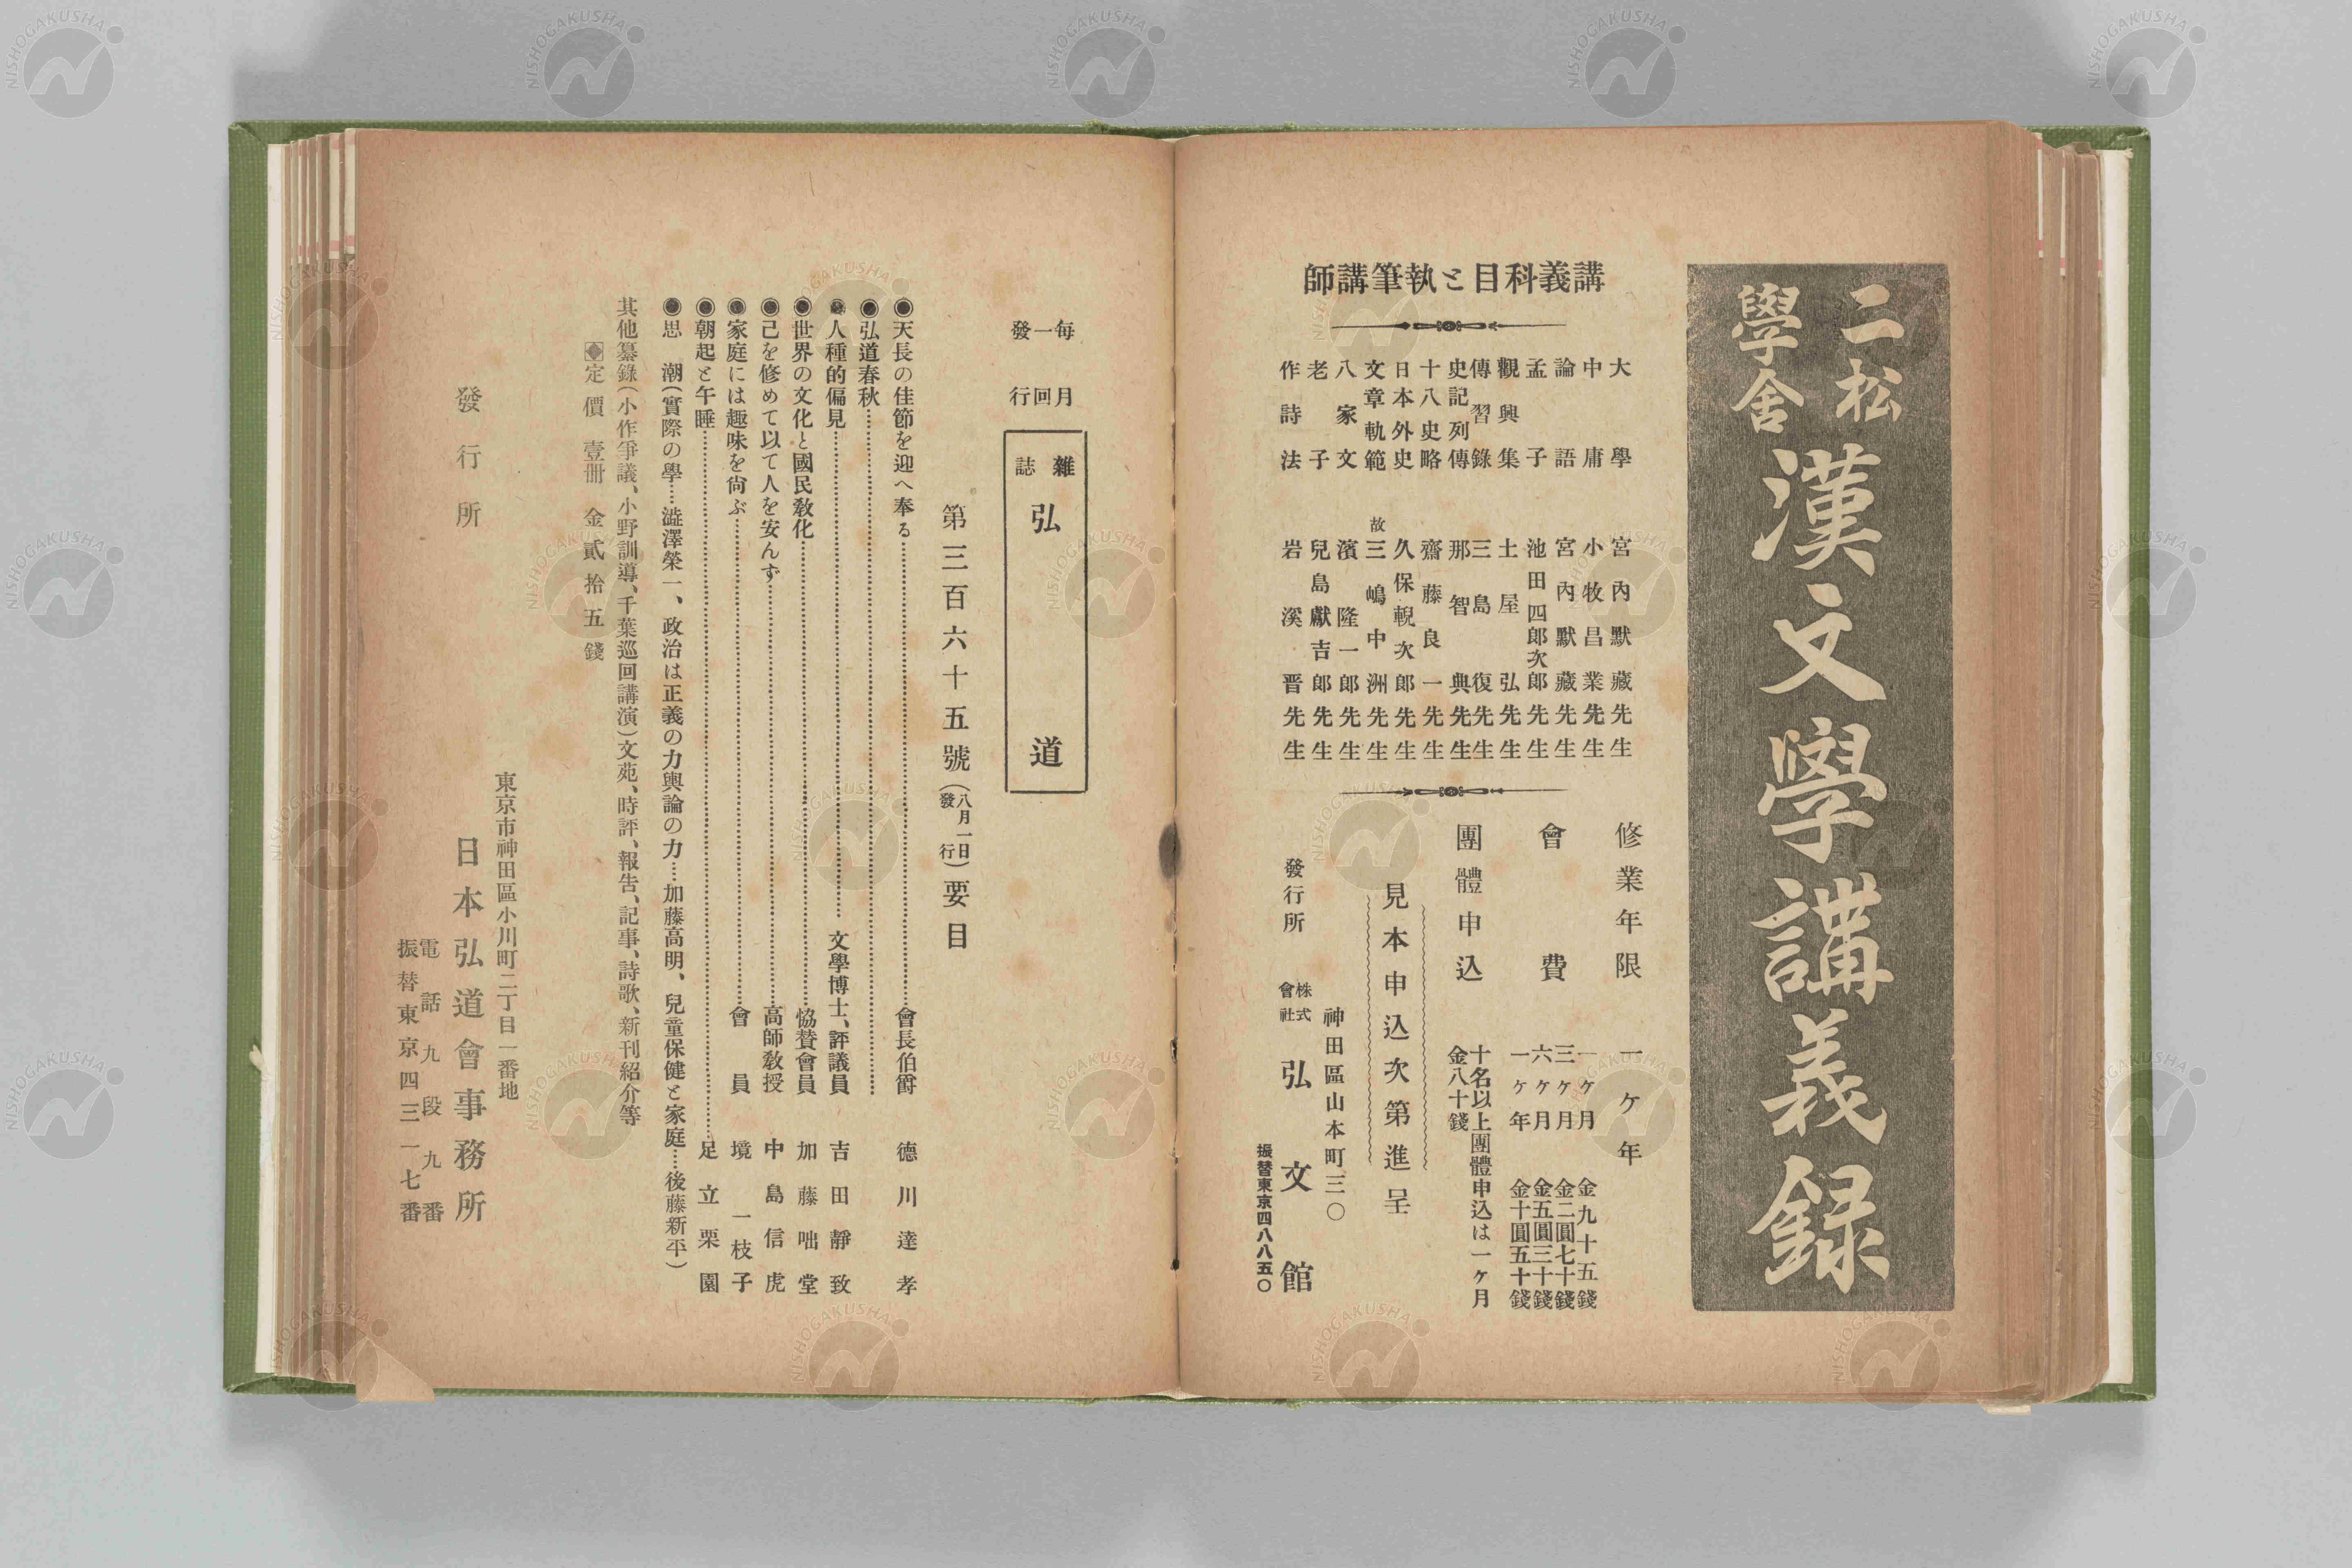 二松學舍 漢文學講義録
講義科目と執筆講師
大學 宮內默藏先生
中庸 小牧昌業先生
論語 宮內默藏先生
孟子 池田四郎次郎先生
觀興集 土屋弘先生
傳習錄 三島復先生
史記列傳 那智典先生
十八史略 齋藤良一先生
日本外史 久保輗次郎先生
文章軌範 故三嶋中洲先生
八家文 濱隆一郎先生
老子 兒島獻吉郎先生
作詩法 岩溪晋先生
修業年限 一ケ年
會費 一ケ月 金九十五錢
三ケ月 金二圓七十錢
六ケ月 金五圓三十錢
一ケ年 金十圓五十錢
團體申込 十名以上團體申込は一ケ月
金八十錢
見本申込次第進呈
神田區山本町三〇
發行所 株式會社 弘文館
振替東京四八八五〇
每月一回發行
雜誌 弘道
第三百六十五號(八月一日發行)要目
◉天長の佳節を迎へ奉る……會長伯爵 德川達孝
◉弘道春秋……
◉人種的偏見……文學博士、評議員 吉田靜致
◉世界の文化と國民敎化……協賛會員 加藤咄堂
◉己を修めて以て人を安んず……高師敎授 中島信虎
◉家庭には趣味を尙ぶ……會員 境一枝子
◉朝起と午睡……足立栗園
◉思潮(實際の學…澁澤榮一、政治は正義の力輿論の力…加藤高明、兒童保健と家庭…後藤新平)
其他纂錄(小作爭議、小野訓導、千葉巡回講演)文苑、時評、報吿、記事、詩歌、新刊紹介等
定價 壹冊 金貳拾五錢
東京市神田區小川町二丁目一番地
發行所 日本弘道會事務所
電話九段九番
振替東京四三一七番
NISHOGAKUSHA